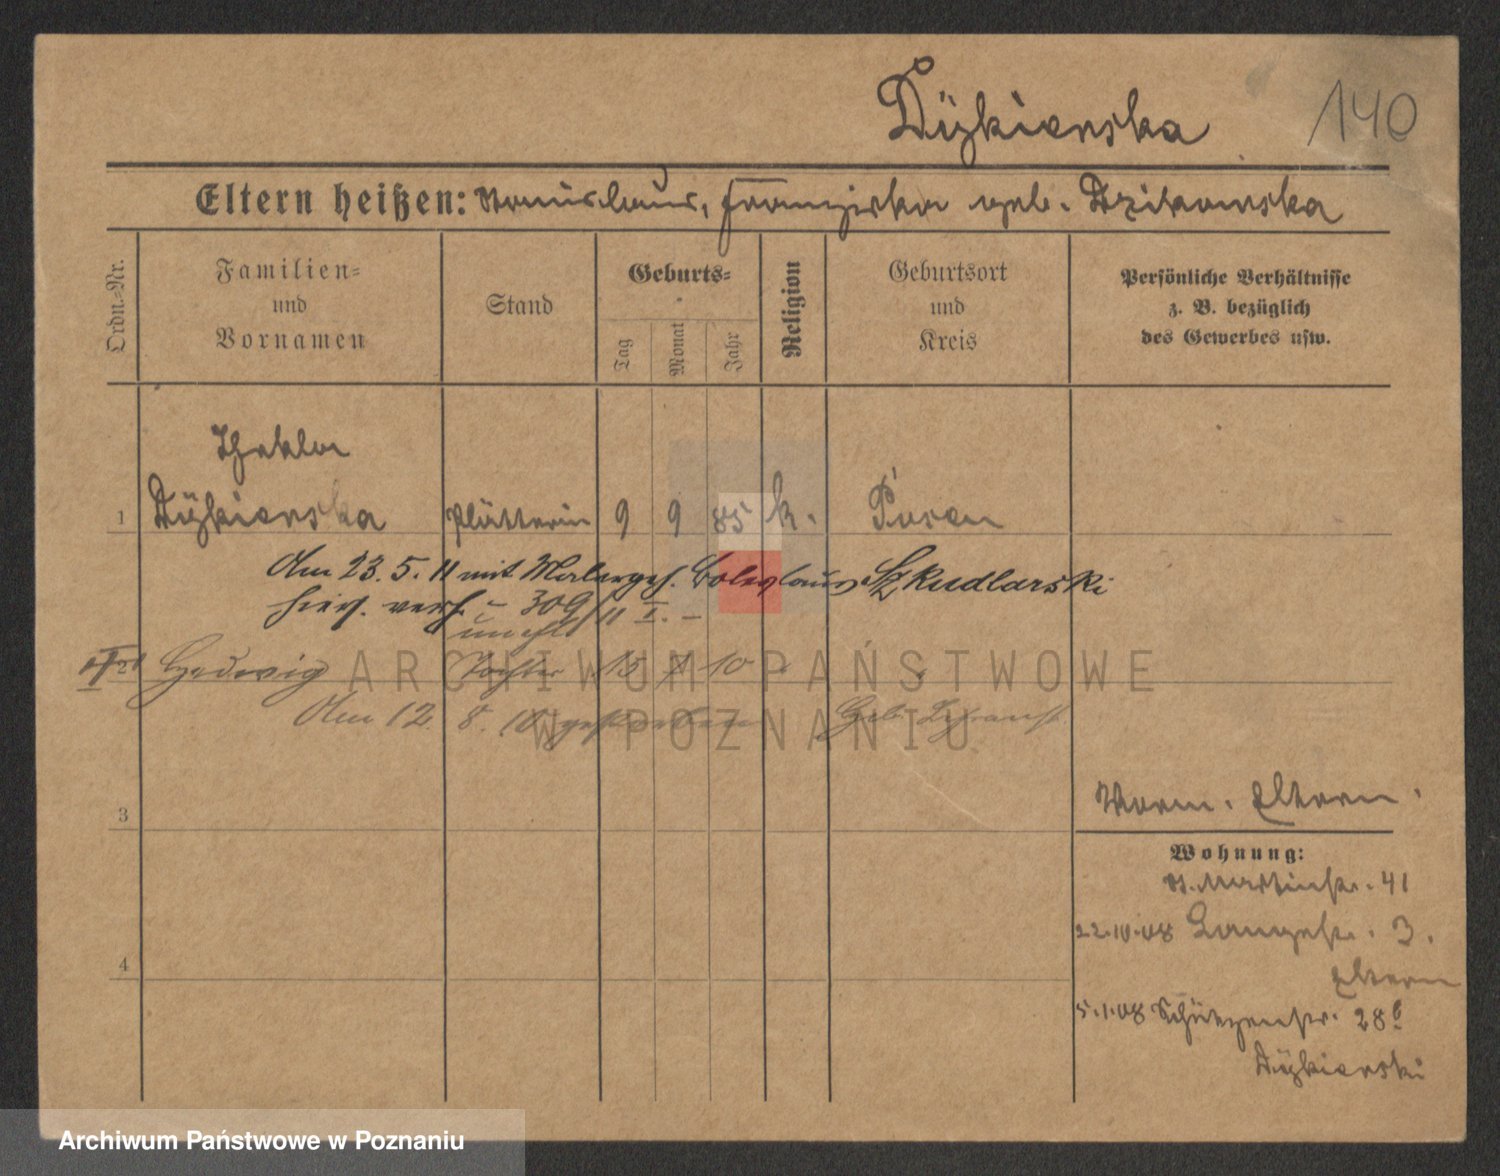 Dÿzkierska
140
Eltern heißen: Stanislaus, Franziska geb. Dzikowska
Ordn.-Nr.
Familien-
und
Vornamen
Stand
Geburts-
Tag
Monat
Jahr
Religion
Geburtsort
und
Kreis
Persönliche Verhältnisse
z. B. bezüglich
des Gewerbes usw.
Thekla
1 Plätterin 9 9 85 k. Posen
Am 23. 5. 11 mit Malergeh. Boleslaus Szkudlarski
hies. verh. – 309/11 I. –
unehl
Hedwig Tochter 15 10
Am 12. 8. 10 gestorben Geb.
3
Eltern.
Wohnung:
St. Martinstr. 41
22.10.08 Langestr. 3.
Eltern
4
5.1.08 Schützenstr. 28b
ARCHIWUM PAŃSTWOWE
W POZNANIU
Archiwum Państwowe w Poznaniu